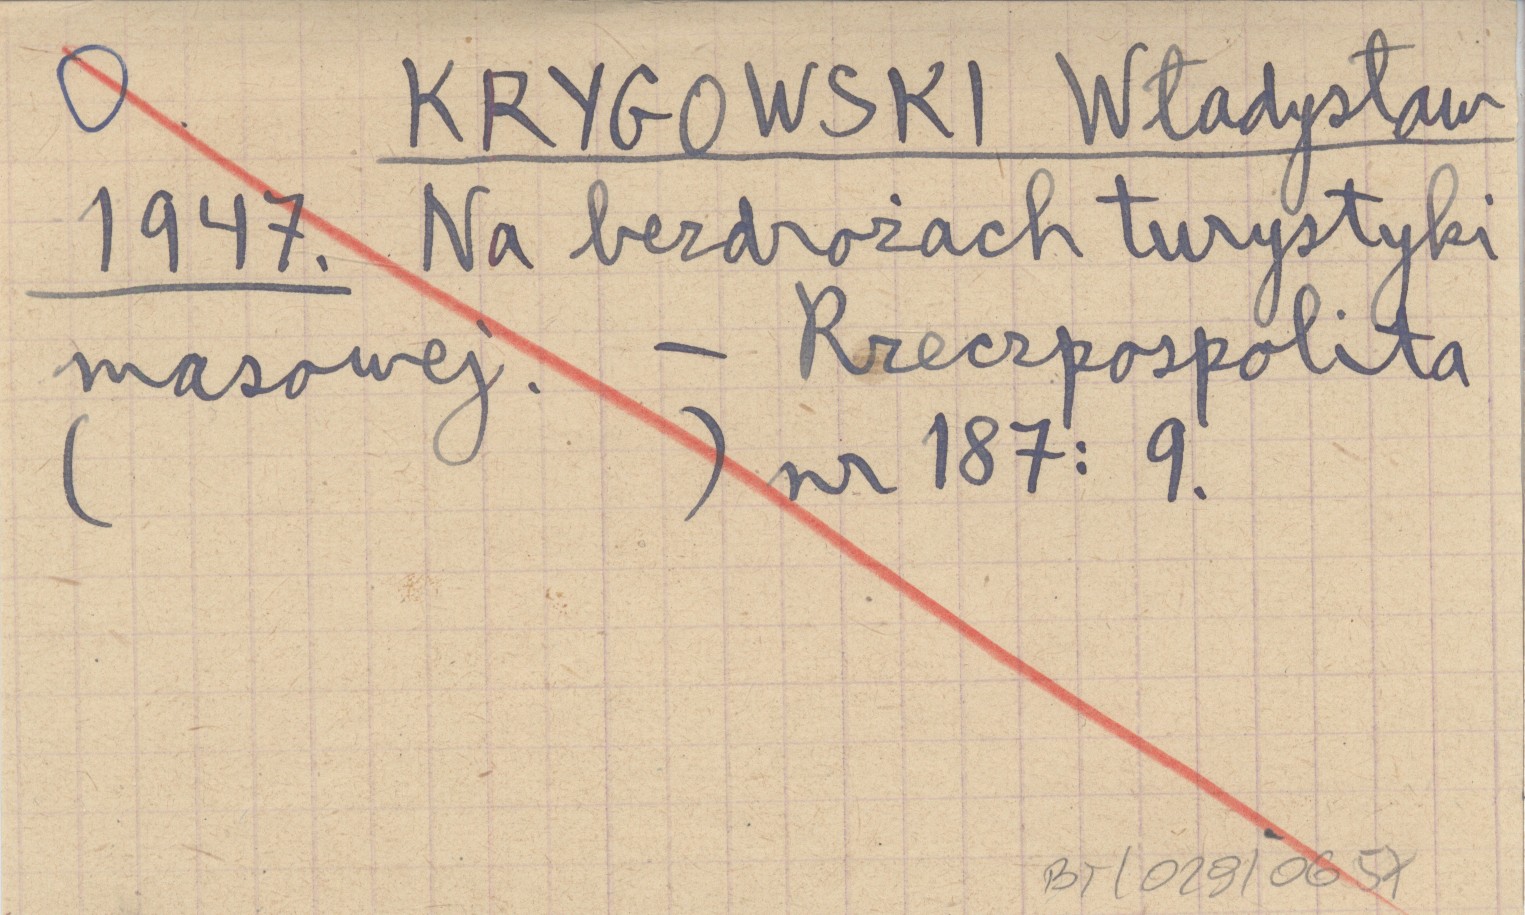 O KRYGOWSKI Władysław
1947. Na bezdrożach turystyki
masowej. – Rzeczpospolita
( ) nr 187: 9.
BT/028/0657